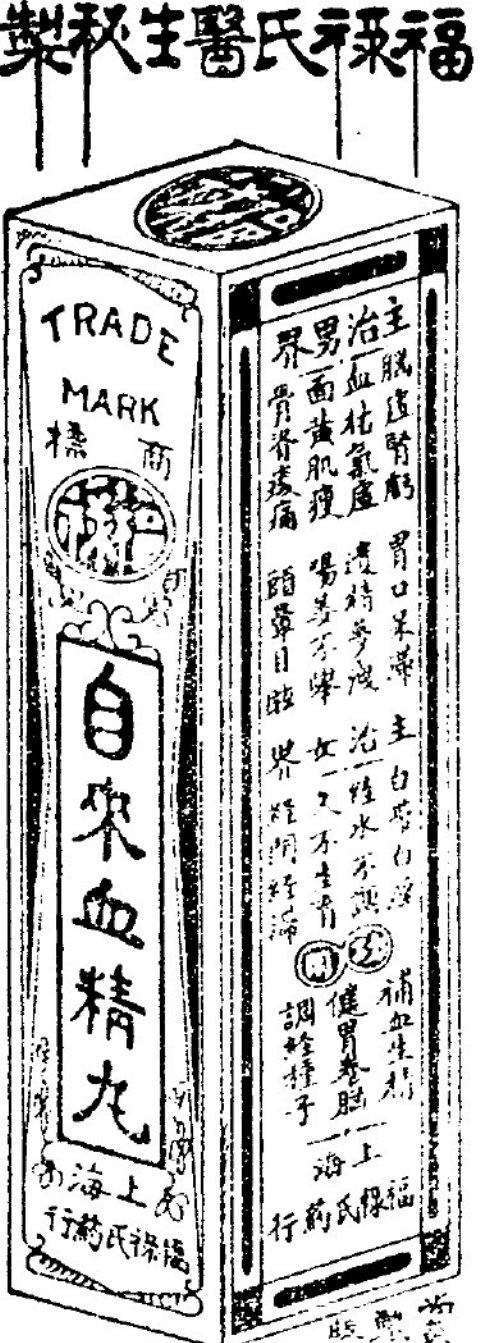 福祿氏醫生秘製
TRADE
MARK
商標
自來血精丸
上海
福祿氏藥行
主治男界
腦虛腎虧
血枯氣虛
面黃肌瘦
骨脊痠痛
胃口呆滯
遺精夢洩
陽萎不舉
頭暈目眩
主治女界
白帶白淫
經水不調
久不生育
經閉經滯
功用
補血生精
健胃養腦
調經種子
上海
福祿氏藥行